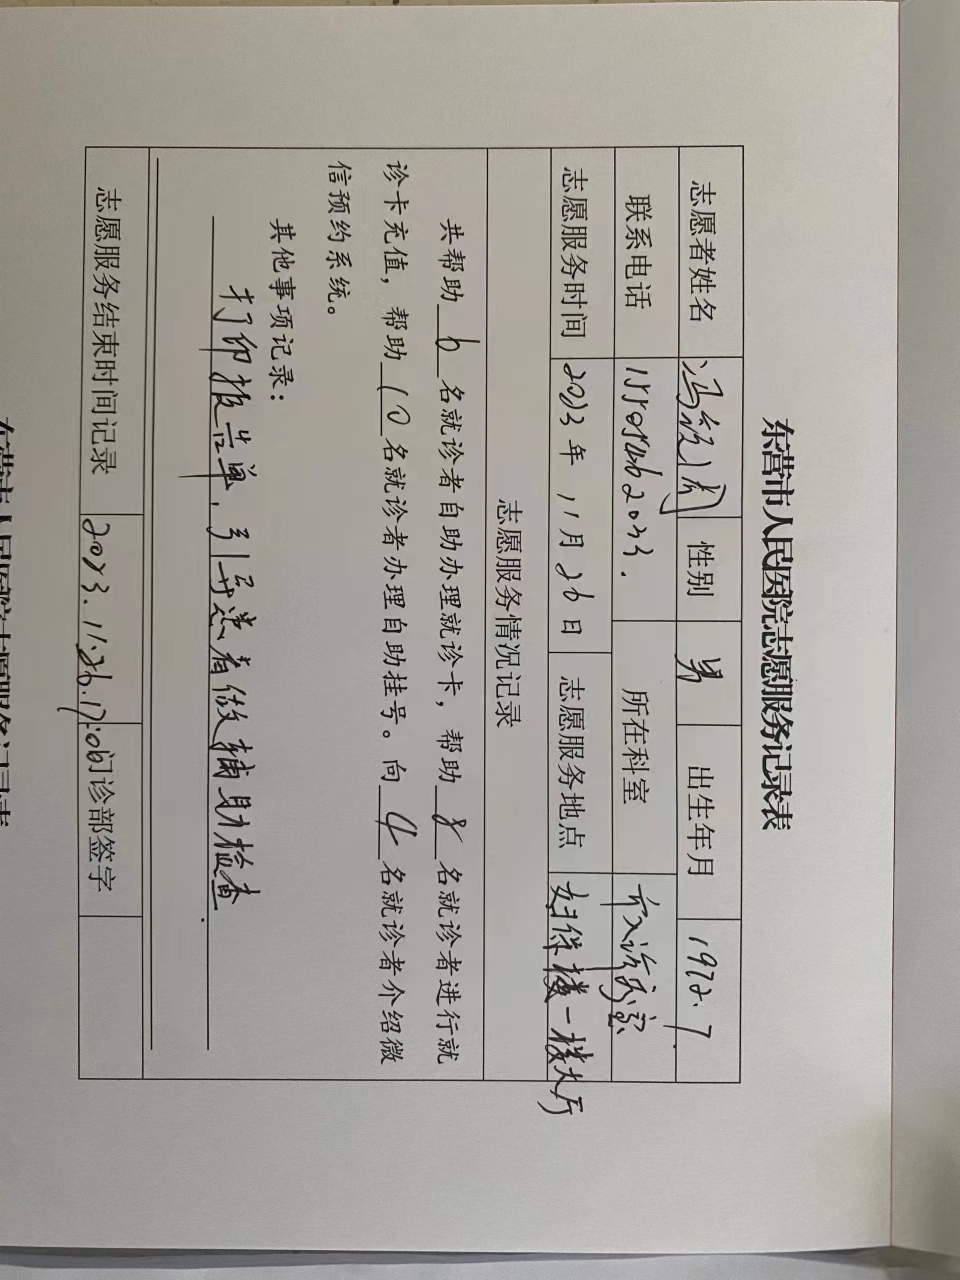 东营市人民医院志愿服务记录表
志愿者姓名 冯 性别 男 出生年月 1972.7
联系电话 所在科室
志愿服务时间 2023年11月26日 志愿服务地点 妇保楼一楼大厅
志愿服务情况记录
共帮助 6 名就诊者自助办理就诊卡，帮助 8 名就诊者进行就
诊卡充值，帮助 10 名就诊者办理自助挂号。向 4 名就诊者介绍微
信预约系统。
其他事项记录：
打印报告单，引导患者做辅助检查
志愿服务结束时间记录 2023.11.26.17:06 门诊部签字